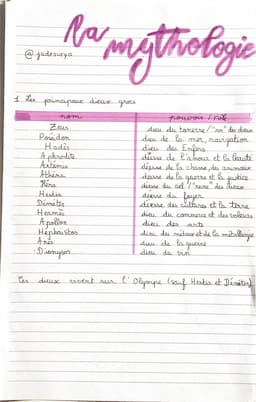 La mythologie
@jadesurya
1 Les principaux dieux grecs
nom pouvoir / rôle
Zeus dieu du tonerre / "roi" des dieux
Poséidon dieu de la mer, navigation
Hadès dieu des Enfers
Aphrodite déesse de l'amour et la beauté
Artémis déesse de la chasse, des animaux
Athéna déesse de la guerre et la justice
Héra déesse du ciel / "reine" des dieux
Hestia déesse du foyer
Déméter déesse des cultures et la terre
Hermès dieu du commerce et des voleurs
Apollon dieu des arts
Héphaistos dieu du métaux et de la métallurgie
Arès dieu de la guerre
Dionysos dieu du vin
Ces dieux vivent sur l'Olympe (sauf Hestia et Déméter)